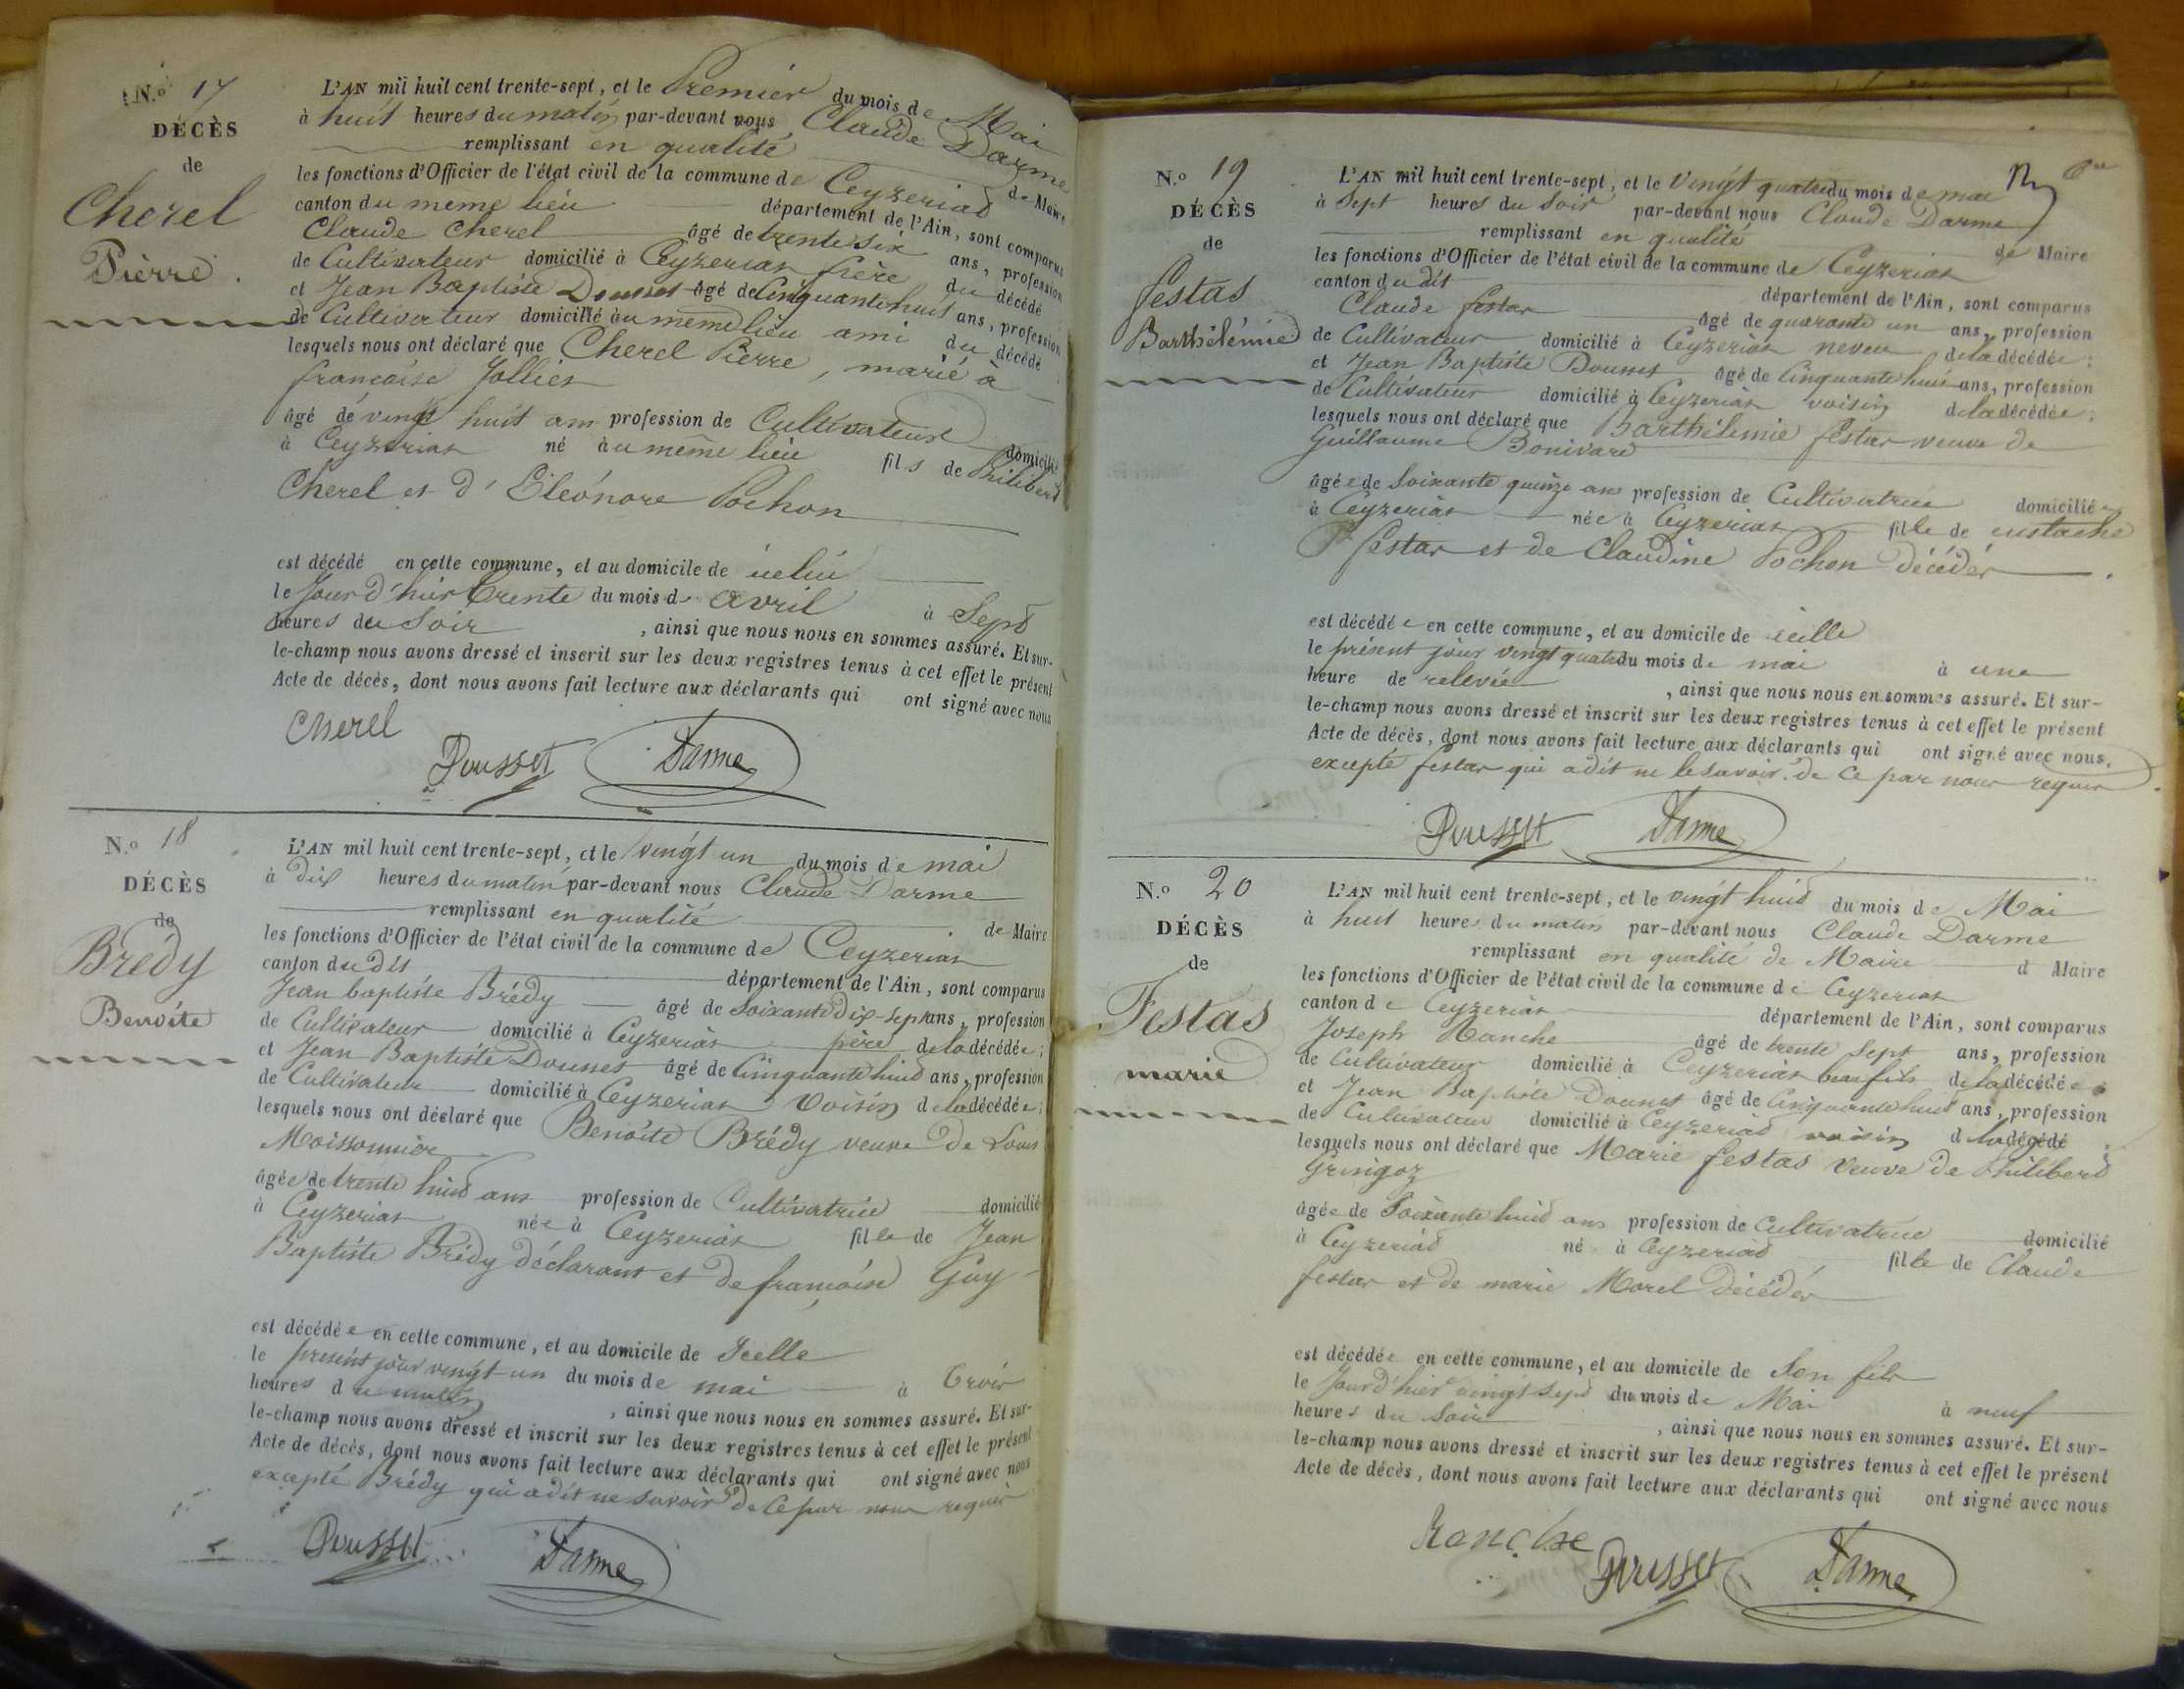 N.o 17
DÉCÈS
de
Cherel
Pièrre.
L'AN mil huit cent trente-sept, et le Premier du mois de Mai
à huit heures du matin par-devant nous Claude Darme
remplissant en qualité de Maire
les fonctions d'Officier de l'état civil de la commune de Ceyzeriat
canton du meme lieu département de l'Ain, sont comparus
Claude Cherel âgé de trente six ans, profession
de Cultivateur domicilié à Ceyzeriat frère du décédé
et Jean Baptiste Dousset âgé de Cinquante huit ans, profession
de Cultivateur domicilié au même lieu ami du décédé
lesquels nous ont déclaré que Cherel Pierre, marié à
francoise Jollier
âgé de vingt huit ans profession de Cultivateur domicilié
à Ceyzeriat né au même lieu fils de Philibert
Cherel et d'Eléonore Pochon
est décédé en cette commune, et au domicile de icelui
le Jour d'hier trente du mois de avril à Sept
heures du Soir, ainsi que nous nous en sommes assuré. Et sur-
le-champ nous avons dressé et inscrit sur les deux registres tenus à cet effet le présent
Acte de décès, dont nous avons fait lecture aux déclarants qui ont signé avec nous
Cherel
Dousset Darme
N.o 18
DÉCÈS
de
Brédy
Benoite
L'AN mil huit cent trente-sept, et le vingt un du mois de mai
à dix heures du matin par-devant nous Claude Darme
remplissant en qualité de Maire
les fonctions d'Officier de l'état civil de la commune de Ceyzeriat
canton du dit département de l'Ain, sont comparus
Jean baptiste Brédy âgé de Soixante dix-sept ans, profession
de Cultivateur domicilié à Ceyzeriat père de la décédée;
et Jean Baptiste Dousset âgé de Cinquante huit ans, profession
de Cultivateur domicilié à Ceyzeriat Voisin de la décédée;
lesquels nous ont déclaré que Benoite Brédy veuve de Louis
Moissonnier
âgée de trente huit ans profession de Cultivatrice domicilié
à Ceyzeriat née à Ceyzeriat fille de Jean
Baptiste Brédy déclarant et de francoise Guy
est décédée en cette commune, et au domicile de Icelle
le présent jour vingt-un du mois de mai à trois
heures du matin, ainsi que nous nous en sommes assuré. Et sur-
le-champ nous avons dressé et inscrit sur les deux registres tenus à cet effet le présent
Acte de décès, dont nous avons fait lecture aux déclarants qui ont signé avec nous
excepté Brédy qui a dit ne savoir de ce par nous requis
Dousset Darme
N.o 19
DÉCÈS
de
Festas
Barthélémie
L'AN mil huit cent trente-sept, et le vingt quatre du mois de mai
à Sept heures du Soir par-devant nous Claude Darme
remplissant en qualité de Maire
les fonctions d'Officier de l'état civil de la commune de Ceyzeriat
canton du dit département de l'Ain, sont comparus
Claude festas âgé de quarante un ans, profession
de Cultivateur domicilié à Ceyzeriat neveu de la décédée;
et Jean Baptiste Dousset âgé de Cinquante huit ans, profession
de Cultivateur domicilié à Ceyzeriat voisin de la décédée;
lesquels nous ont déclaré que Barthélemie festas veuve de
Guillaume Bonivard
âgée de Soixante quinze ans profession de Cultivatrice domiciliée
à Ceyzeriat née à Ceyzeriat fille de eustache
festas et de Claudine Pochon décédés.
est décédée en cette commune, et au domicile de icelle
le présent jour vingt quatre du mois de mai à une
heure de relevée, ainsi que nous nous en sommes assuré. Et sur-
le-champ nous avons dressé et inscrit sur les deux registres tenus à cet effet le présent
Acte de décès, dont nous avons fait lecture aux déclarants qui ont signé avec nous.
excepté festas qui a dit ne le savoir de ce par nous requis.
Dousset Darme
N.o 20
DÉCÈS
de
Festas
marie
L'AN mil huit cent trente-sept, et le vingt huit du mois de Mai
à huit heures du matin par-devant nous Claude Darme
remplissant en qualité de Maire d Maire
les fonctions d'Officier de l'état civil de la commune de Ceyzeriat
canton de Ceyzeriat département de l'Ain, sont comparus
Joseph Ranche âgé de trente Sept ans, profession
de Cultivateur domicilié à Ceyzeriat beau fils de la décédée
et Jean Baptiste Dousset âgé de Cinquante huit ans, profession
de Cultivateur domicilié à Ceyzeriat voisin de la décédé
lesquels nous ont déclaré que Marie festas veuve de Philibert
Gringoz
âgée de Soixante huit ans profession de Cultivatrice domicilié
à Ceyzeriat né à Ceyzeriat fille de Claude
festas et de marie Morel décédés
est décédée en cette commune, et au domicile de Son fils
le Jour d'hier vingt Sept du mois de Mai à neuf
heures du Soir, ainsi que nous nous en sommes assuré. Et sur-
le-champ nous avons dressé et inscrit sur les deux registres tenus à cet effet le présent
Acte de décès, dont nous avons fait lecture aux déclarants qui ont signé avec nous
Ranche
Dousset Darme